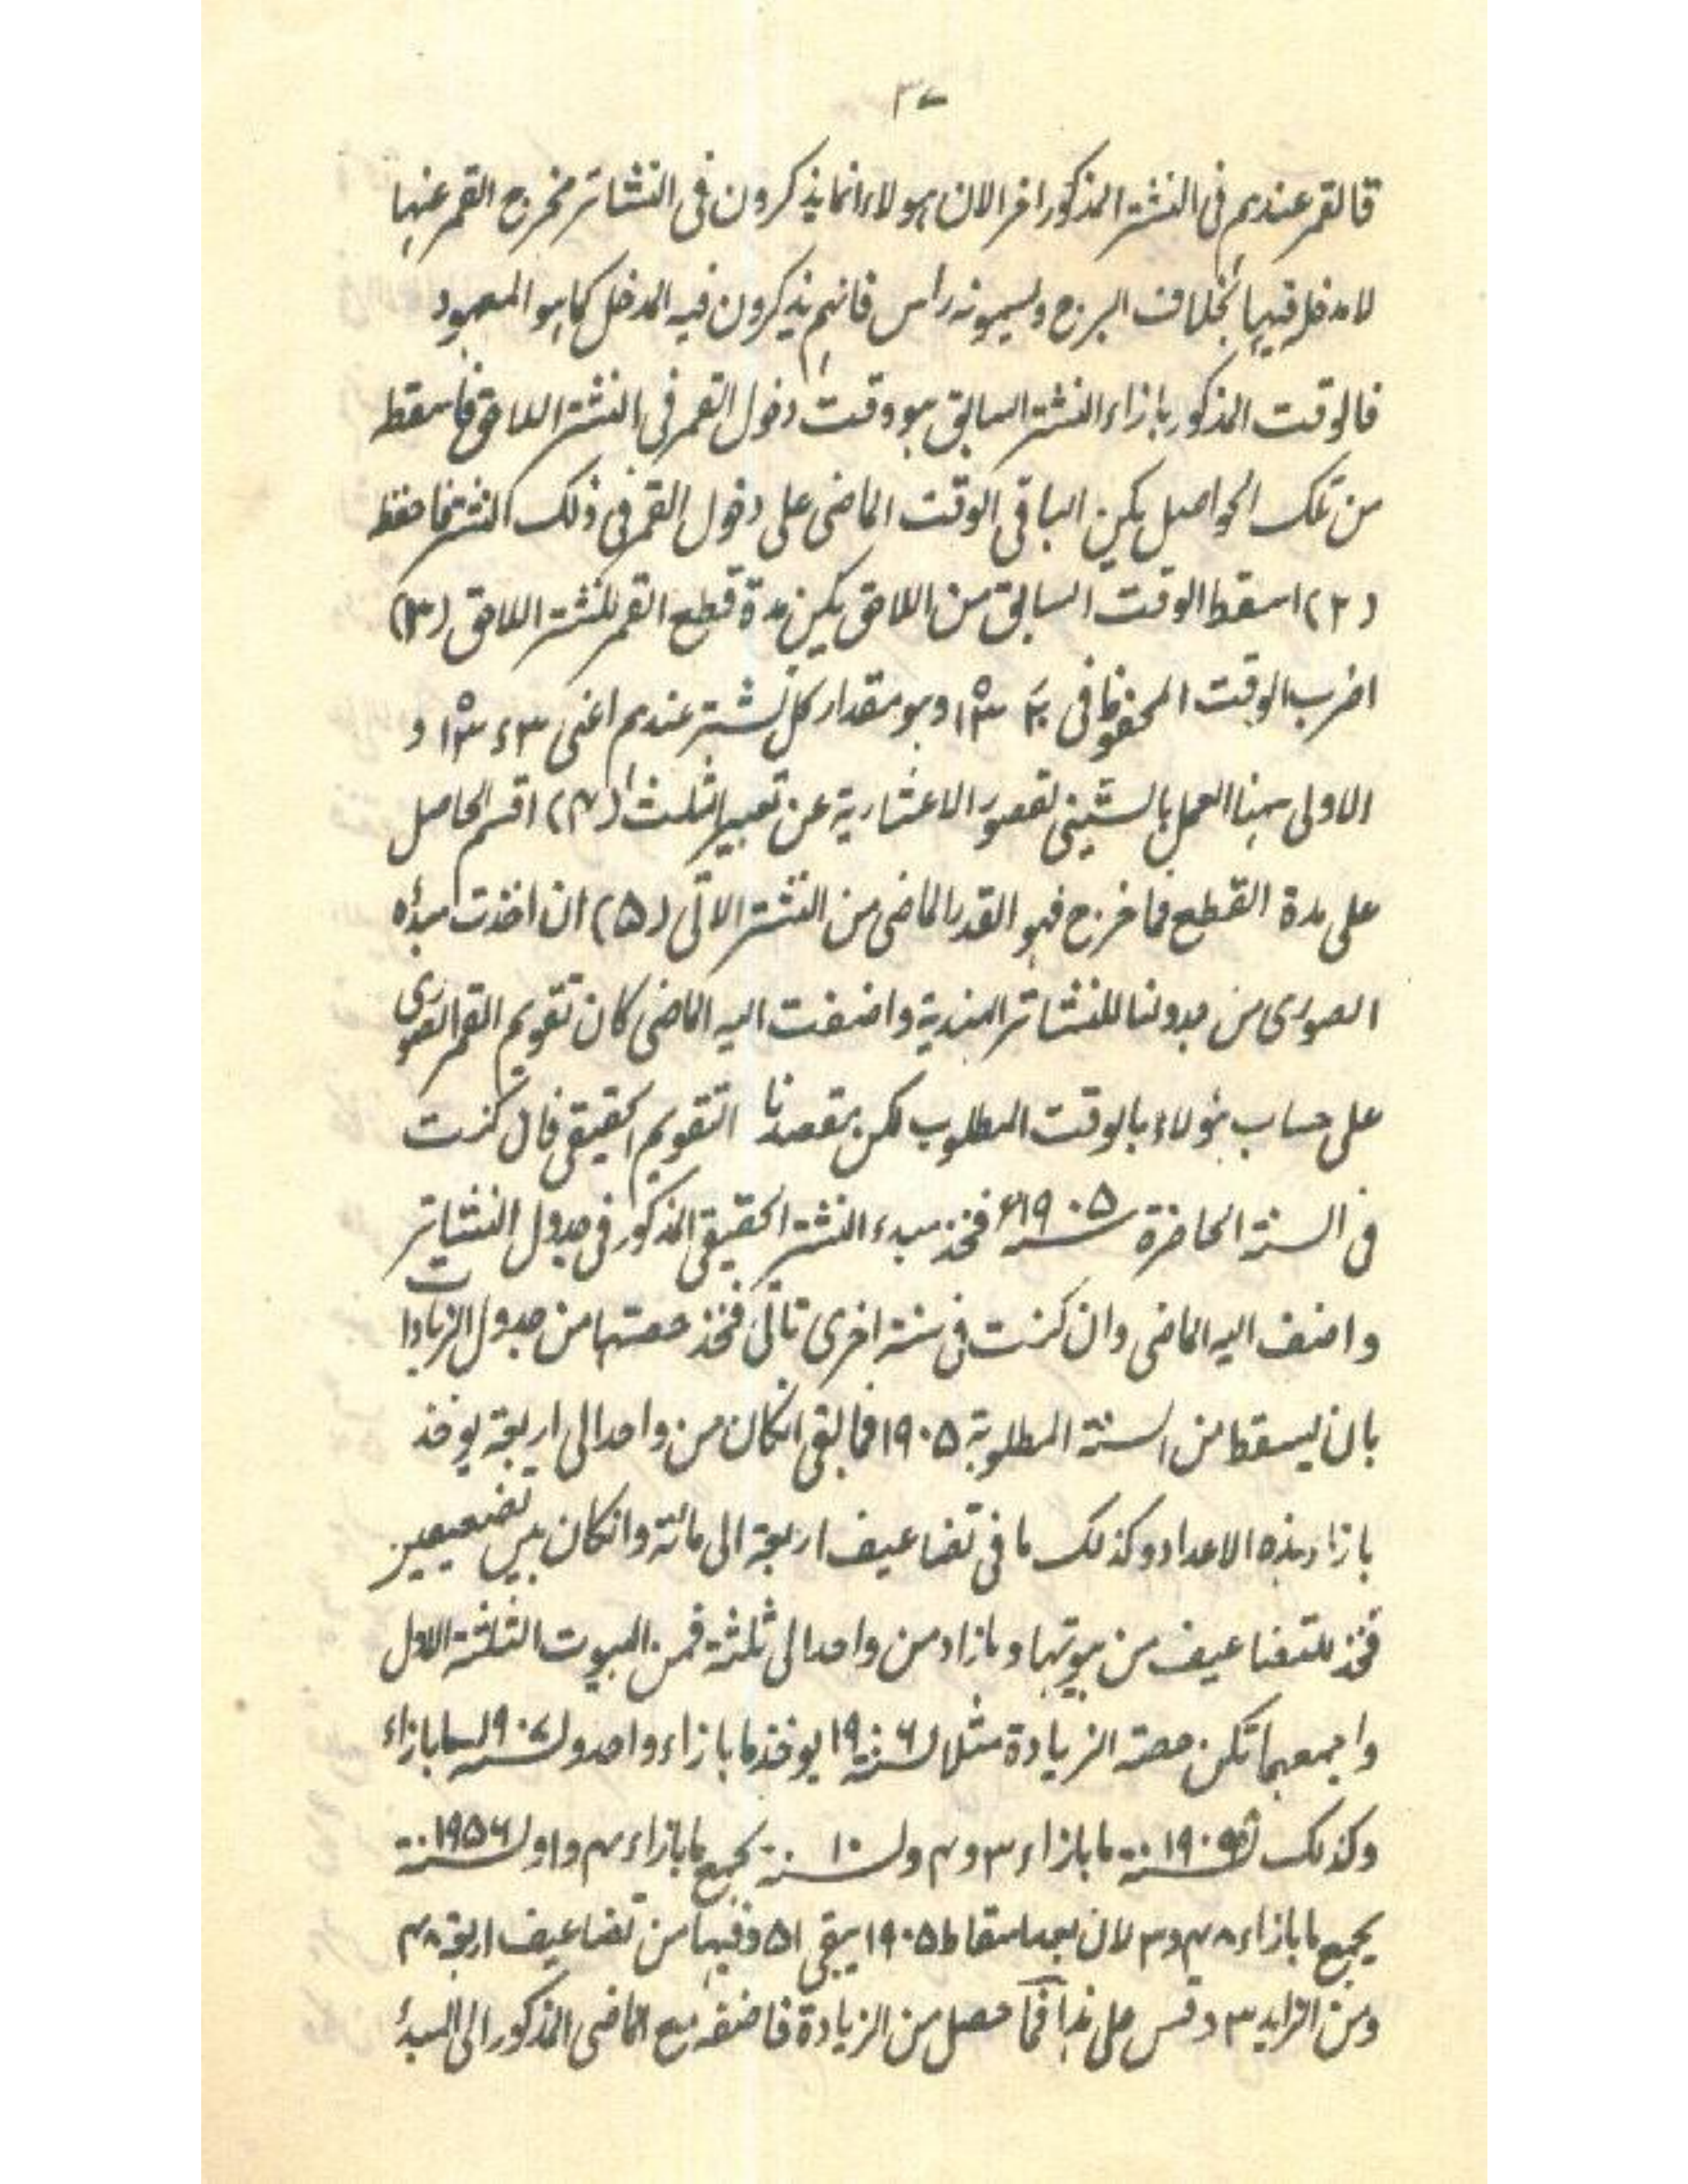 ٣٧
فالقمر عندهم فى النشتر المذكور اخر الان هولاء انما يذكرون فى النشاتر مخرج القمر عنها
لا مدخله فيها بخلاف البرج ويسمونه راس فانهم يذكرون فيه المدخل كما هو المعهود
فالوقت المذكور بازاء النشتر السابق هو وقت دخول القمر فى النشتر اللاحق فاسقطه
من تلك الحواصل يكن الباقى الوقت الماضى على دخول القمر فى ذلك النشتر فاحفظه
(٢) اسقط الوقت السابق من اللاحق يكن مدة قطع القمر للنشتر اللاحق (٣)
اضرب الوقت المحفوظ فى وهو مقدار كل نشتر عندهم اعنى و
الاولى ههنا العمل بالستينى لقصور الاعشارية عن تعبير الثلث (٤) اقسم الحاصل
على مدة القطع فما خرج فهو القدر الماضى من النشتر الاتى (۵) ان اخذت مبدأه
الصورى من جدولنا للنشاتر الهندية واضفت اليه الماضى كان تقويم القمر الصورى
على حساب هؤلاء بالوقت المطلوب لكن مقصدنا التقويم الحقيقى فان كنت
فى السنة الحاضرة سنه ١٩٠۵ء فخذ مبدء النشتر الحقيقى المذكور فى جدول النشاتر
واضف اليه الماضى وان كنت فى سنة اخرى تاتى فخذ حصتها من جدول الزيادات
بان يسقط من السنة المطلوبة ١٩٠۵ فما بقى انكان من واحد الى اربعة يوخذ
بازاء هذه الاعداد وكذلك ما فى تضاعيف اربعة الى مائة وانكان بين تضعيفين
فخذ للتضاعيف من بيوتها وما زاد من واحد الى ثلثة فمن البيوت الثلثة الاول
واجمعهما تكن حصة الزيادة مثلا لسنة ١٩٠٦ يوخذ ما بازاء واحد ولسنة ١٩٠٧ ما بازاء
وكذلك لسنة ١٩٠ ما بازاء ٣ و ٤ ولسنة ١٠ يجمع ما بازاء ٤ و ١ ولسنة ١٩۵٦
يجمع ما بازاء ٤٨ و ٣ لان بعد اسقاط ١٩٠۵ يبقى ۵١ وفيها من تضاعيف اربعة ٤٨
ومن الزايد ٣ وقس على هذا فما حصل من الزيادة فاضفه مع الماضى المذكور الى المبدأ